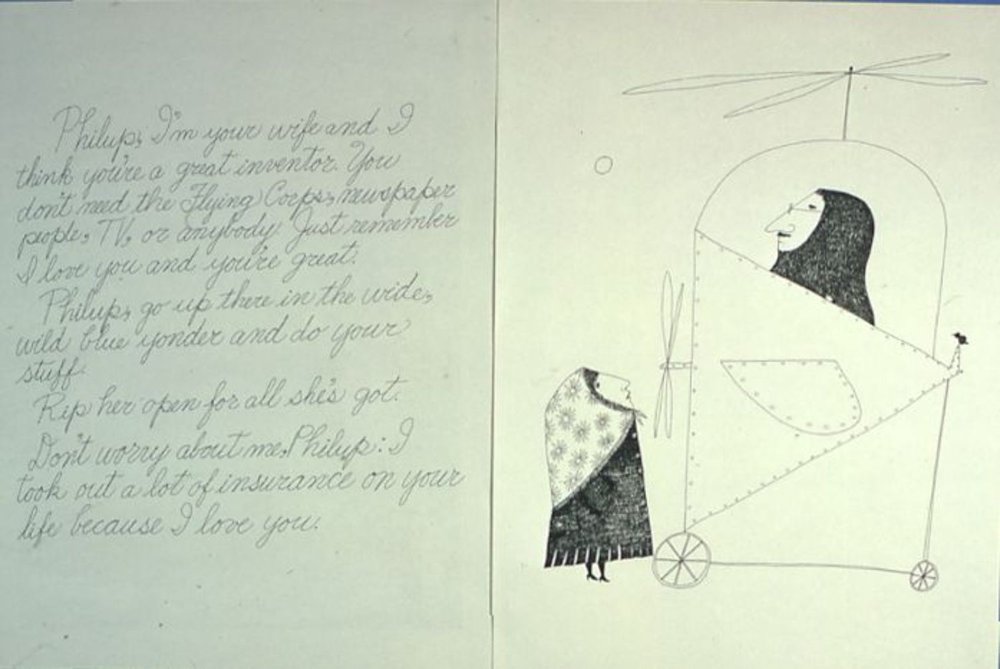 Philup, I'm your wife and I
think you're a great inventor. You
don't need the Flying Corps, newspaper
people, TV, or anybody. Just remember
I love you and you're great.
Philup, go up there in the wide,
wild blue yonder and do your
stuff.
Rip her open for all she's got.
Don't worry about me, Philup: I
took out a lot of insurance on your
life because I love you.